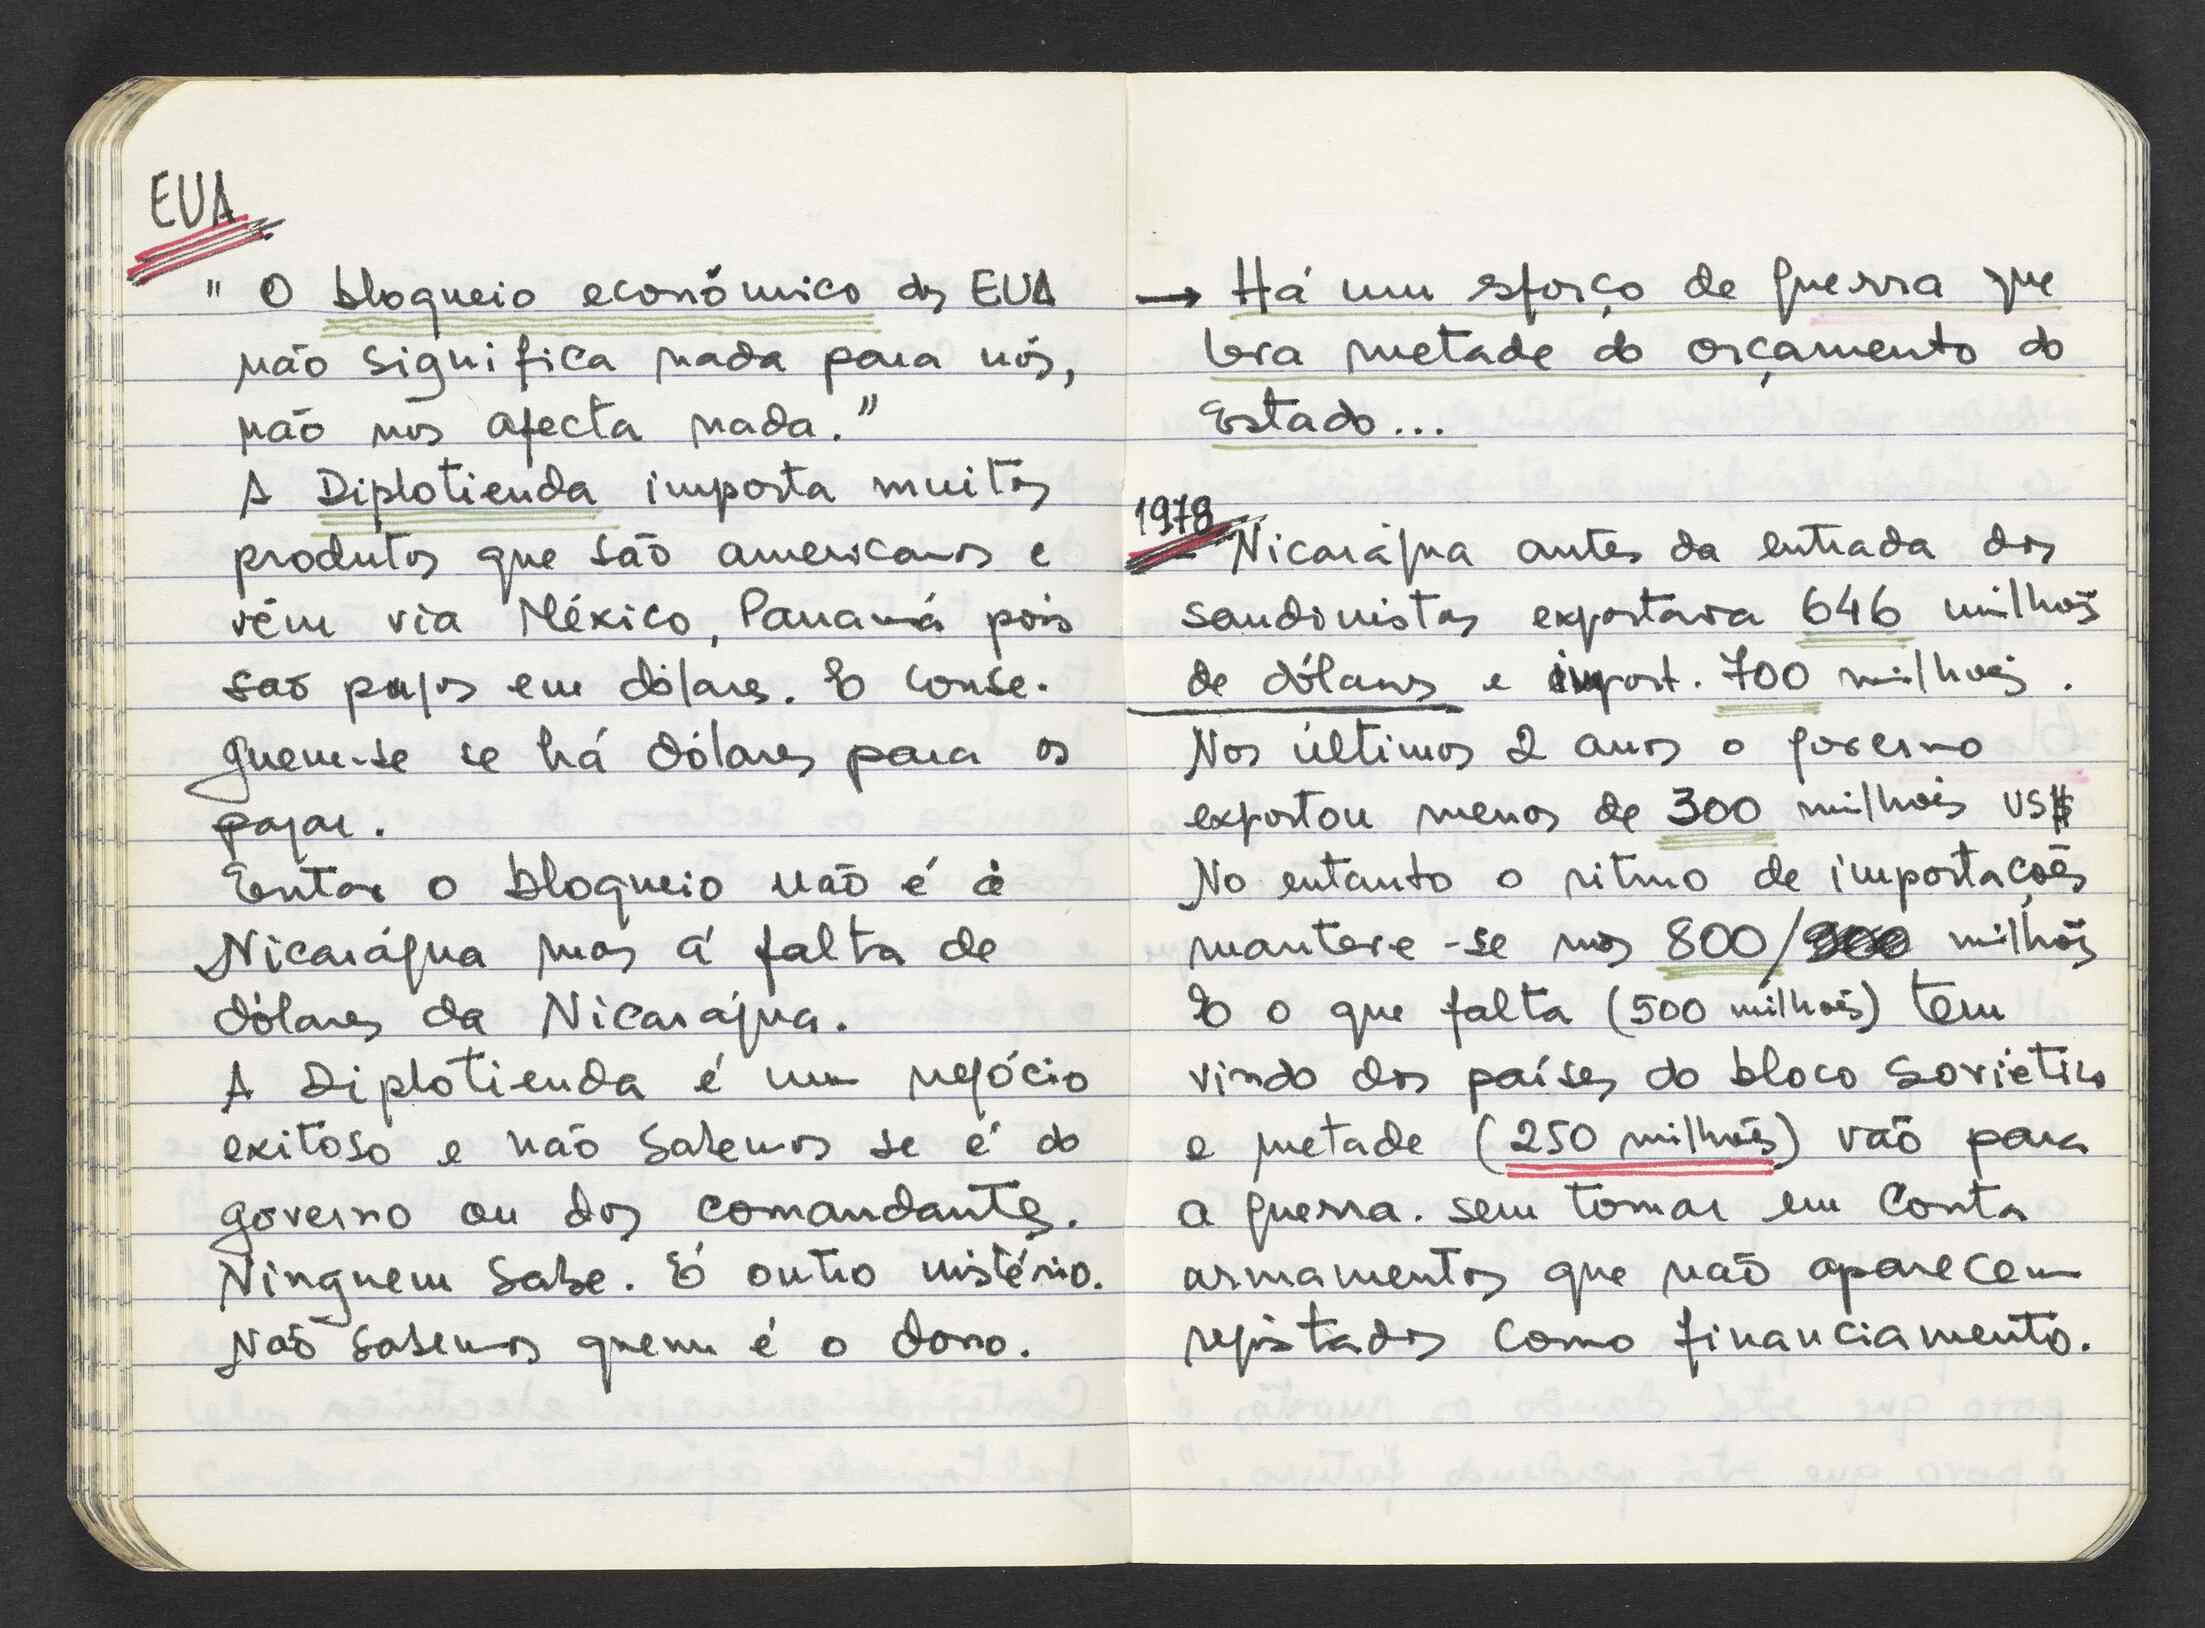 EUA
" O bloqueio económico dos EUA
não significa nada para nós,
não nos afecta nada."
A Diplotienda importa muitos
produtos que são americanos e
vêm via México, Panamá pois
são pagos em dólares. E conse-
guem-se se há dólares para os
pagar.
Então o bloqueio não é à
Nicarágua mas à falta de
dólares da Nicarágua.
A Diplotienda é um negócio
exitoso e não sabemos se é do
governo ou dos comandantes.
Ninguem sabe. É outro mistério.
Não sabemos quem é o dono.
→ Há um esforço de guerra que
leva metade do orçamento do
Estado...
1978
Nicarágua antes da entrada dos
sandinistas exportava 646 milhões
de dólares e import. 700 milhões.
Nos últimos 2 anos o governo
exportou menos de 300 milhões US$
No entanto o ritmo de importações
manteve-se nos 800/900 milhões
E o que falta (500 milhões) tem
vindo dos países do bloco soviético
e metade (250 milhões) vão para
a guerra. sem tomar em conta
armamentos que não aparecem
registados como financiamento.